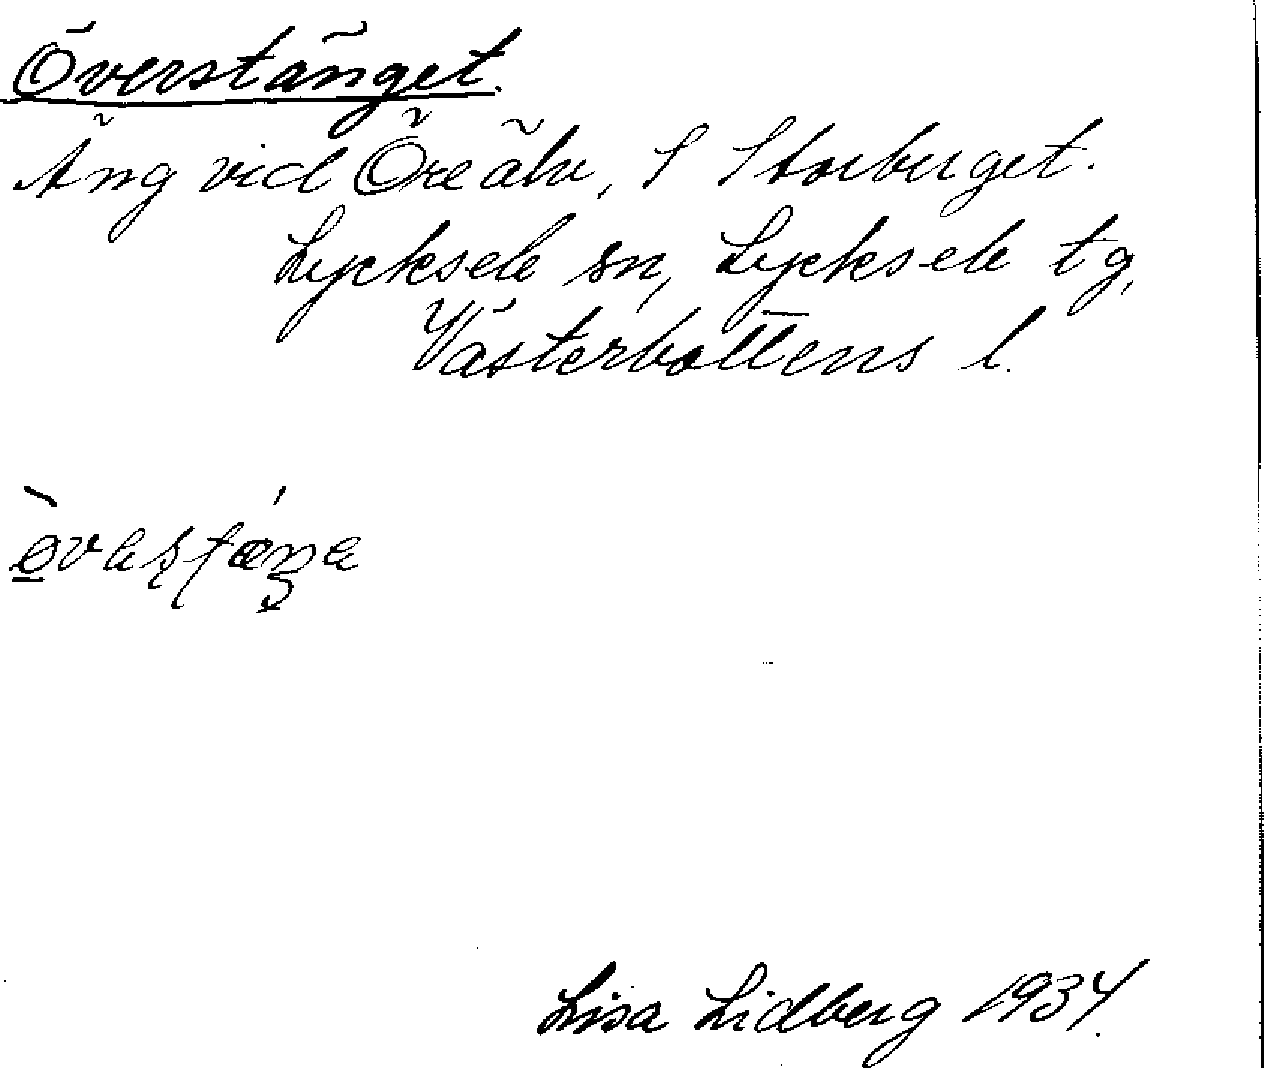 Överstänget.
Äng vid Öreälv, S Storberget.
Lycksele sn, Lycksele tg,
Västerbottens l.
Lisa Lidberg 1934.